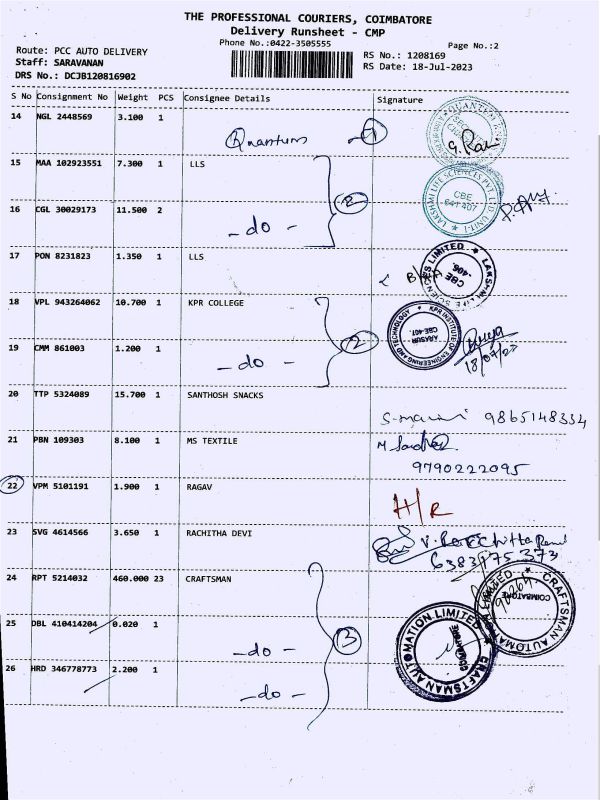 THE PROFESSIONAL COURIERS, COIMBATORE
Delivery Runsheet - CMP
Phone No.:0422-3505555
Page No.:2
Route: PCC AUTO DELIVERY
Staff: SARAVANAN
DRS No.: DCJB120816902
RS No.: 1208169
RS Date: 18-Jul-2023
S No Consignment No Weight PCS Consignee Details Signature
14 NGL 2448569 3.100 1 Quantum 1
QUANTUM
15 MAA 102923551 7.300 1 LLS
LAKSHMI LIFE SCIENCES PVT LTD UNIT-I
CBE
641 407
16 CGL 30029173 11.500 2 -do- 2
17 PON 8231823 1.350 1 LLS
LIFE SCIENCES LIMITED
CBE
-406.
18 VPL 943264062 10.700 1 KPR COLLEGE
KPR INSTITUTE OF ENGINEERING AND TECHNOLOGY
ARASUR
CBE-407.
19 CMM 861003 1.200 1 -do- 2
18/07/23
20 TTP 5324089 15.700 1 SANTHOSH SNACKS
9865148334
21 PBN 109303 8.100 1 MS TEXTILE
9790222095
22 VPM 5101191 1.900 1 RAGAV
H/R
23 SVG 4614566 3.650 1 RACHITHA DEVI
6383175373
24 RPT 5214032 460.000 23 CRAFTSMAN
CRAFTSMAN AUTOMATION LIMITED
COIMBATORE
25 DBL 410414204 0.020 1 -do- 3
CRAFTSMAN AUTOMATION LIMITED
26 HRD 346778773 2.200 1 -do-